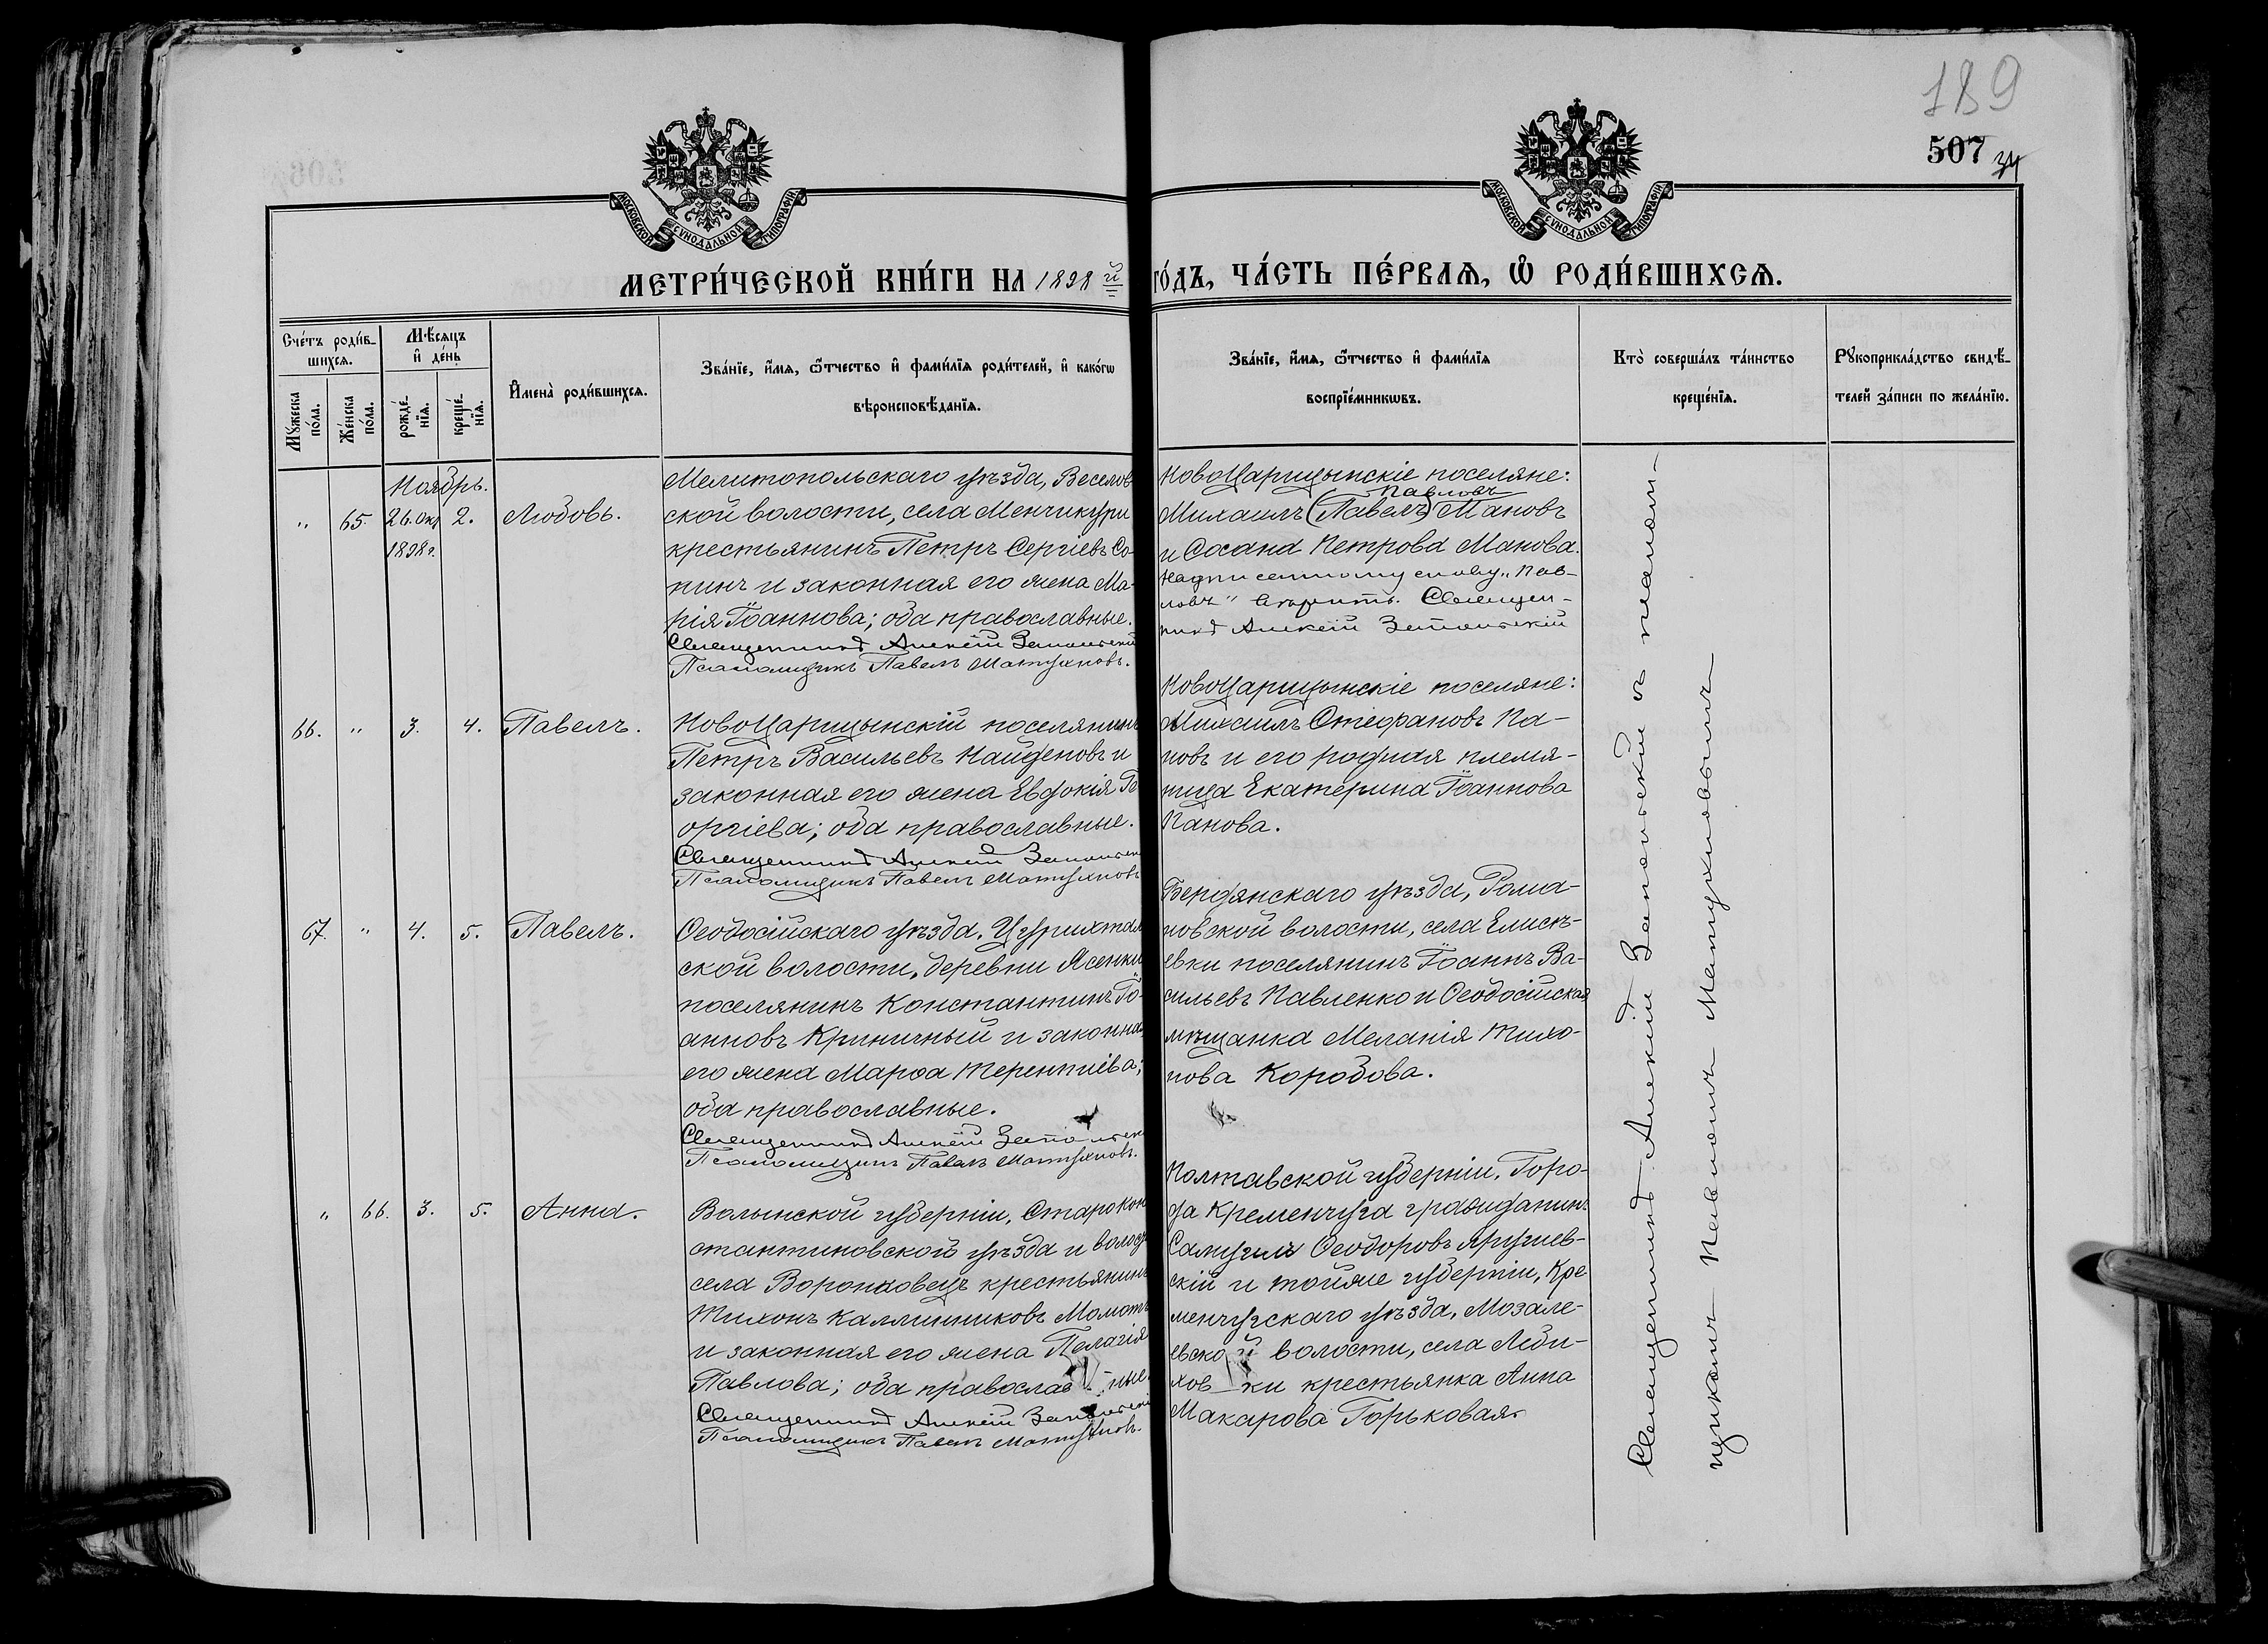 189
507
34
МОСКОВСКОЙ СѴНОДАЛЬНОЙ ТИПОГРАФІИ
МОСКОВСКОЙ СѴНОДАЛЬНОЙ ТИПОГРАФІИ
МЕТРИ́ЧЕСКОЙ КНИ́ГИ НА 1898 й ГО́ДЪ, ЧА́СТЬ ПЕ́РВАѦ, Ѽ РОДИ́ВШИХСѦ.
Сче́тъ роди́в-
шихся.
Му́жеска по́ла.
Же́нска по́ла.
Мѣ́сяцъ и҆ де́нь
рожде́-
нїя.
креще́-
нїя.
И҆мена̀ роди́вшихся.
Зва́нїе, и҆́мя, ѻ҆́тчество и҆ фами́лїя роди́телей, и҆ како́гѡ
вѣроисповѣ́данїя.
Зва́нїе, и҆́мя, ѻ҆́тчество и҆ фами́лїя
воспрїе́мникѡвъ.
Кто̀ соверша́лъ та́инство
креще́нїя.
Рꙋкоприкла́дство свидѣ́-
телей за́писи по жела́нїю.
Ноябрь.
" 65. 26. Окт 2. Любовь.
1898 г.
Мелитопольскаго уѣзда, Веселов
ской волости, села Менчикури
крестьянинъ Петръ Сергіевъ Со-
нинъ и законная его жена Ма-
рія Іоаннова; оба православные.
Священникъ Алексій Запольскій
Псаломщикъ Павелъ Матухновъ.
НовоЦарицынскіе поселяне:
Павловъ
Михаилъ (Павелъ) Мановъ
и Сосана Петрова Манова.
Надписанному слову „Пав-
ловъ" вѣрить. Священ-
никъ Алексій Запольскій
66. " 3. 4. Павелъ.
НовоЦарицынскій поселянинъ
Петръ Васильевъ Найденовъ и
законная его жена Евдокія Ге
оргіева; оба православные.
Священникъ Алексій Запольск
Псаломщикъ Павелъ Матухновъ
НовоЦарицынскіе поселяне:
Михаилъ Стефановъ Па-
новъ и его родная племя-
ница Екатерина Іоаннова
Панова.
67. " 4. 5. Павелъ.
Ѳеодосійскаго уѣзда, Цурихталь
ской волости, деревни Ясенки
поселянинъ Константинъ Іо-
анновъ Криничный и законная
его жена Марѳа Терентиева;
оба православные.
Священникъ Алексій Запольск
Псаломщикъ Павелъ Матухновъ.
Бердянскаго уѣзда, Рома-
новской волости, села Елисѣ-
евки поселянинъ Іоаннъ Ва-
сильевъ Павленко и Ѳеодосійская
мѣщанка Меланія Тихо-
нова Коробова.
" 66. 3. 5. Анна.
Волынской губерніи, Старокон
стантиновской уѣзда и волост
села Воронковецъ крестьянинъ
Тихонъ Каллинниковъ Момотъ
и законная его жена Пелагія
Павлова; оба православ ные.
Священникъ Алексій Запольскій
Псаломщикъ Павелъ Матухновъ.
Полтавской губерніи, Горо-
да Кременчуга гражданинъ
Самуилъ Ѳеодоровъ Яругиев-
скій и тойже губерніи, Кре
менчугскаго уѣзда, Мозале-
евской волости, села Леби-
хов ки крестьянка Анна
Макарова Горьковая.
Священникъ Алексій Запольскій съ псалом-
щикомъ Павломъ Матухновымъ